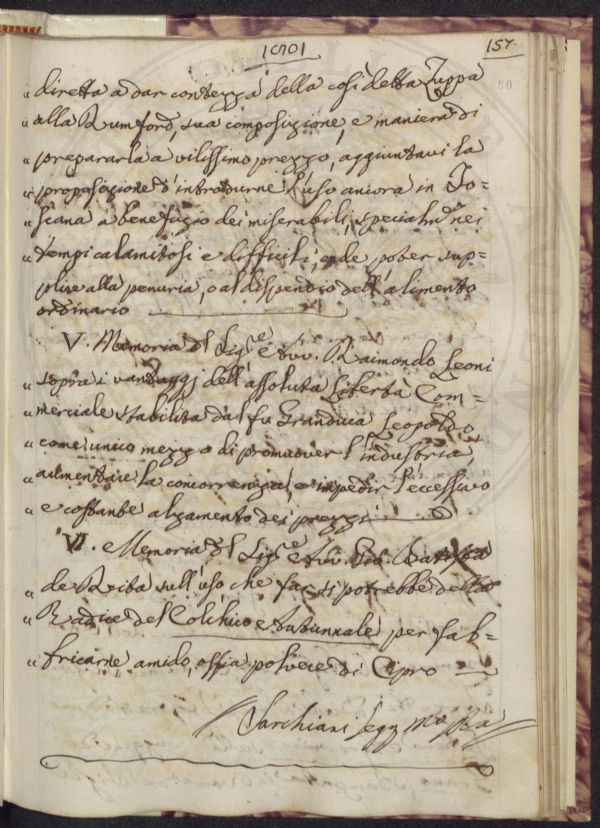 157.
80
" diretta a dar contezza della così detta Zuppa
" alla Rumford, sua composizione, e maniera di
" prepararla a vilissimo prezzo, aggiuntavi la
" proposizione d'introdurne l'uso ancora in To=
" scana a benefizio dei miserabili, specialm.e nei
" tempi calamitosi e difficili, onde poter sup=
plire alla penuria, o al dispendio dell'alimento
ordinario
V. Memoria del Sig.e Avv. Raimondo Leoni
" sopra i vantaggi dell'assoluta Libertà Com=
" merciale stabilita dal fu Granduca Leopoldo
" come unico mezzo di promuover l'industria,
" aumentare la concorrenza, e impedir l'eccessivo
" e costante alzamento dei prezzi
VI. Memoria del Sig.e Avv. Gio. Batista
" de Riba sull'uso che far si potrebbe della
" Radice del Colchico Autunnale per fab=
" fricarne amido, ossia polvere di Cipro
Sarchiani Seg.